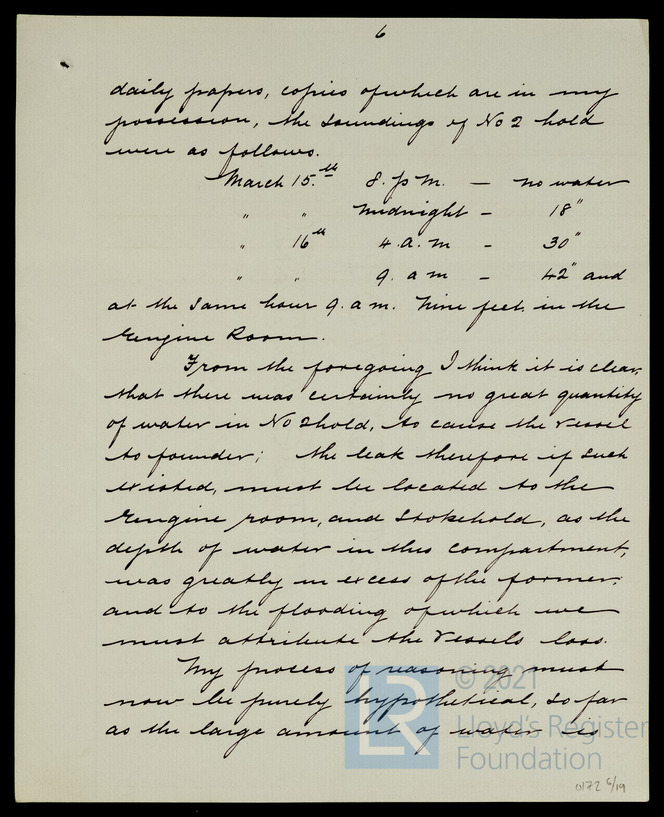 6
daily papers, copies of which are in my
possession, the soundings of No 2 hold
were as follows.
March 15.th 8. p m. — no water
" " Midnight - 18"
" 16th 4. a. m - 30"
" " 9. a m - 42" and
at the same hour 9. a. m. Nine feet. in the
Engine Room.
From the foregoing I think it is clear,
that there was certainly no great quantity
of water in No 2 hold, to cause the vessel
to founder; the leak therefore if such
existed, must be located to the
Engine room, and Stokehold, as the
depth of water in this compartment,
was greatly in excess of the former.
and to the flooding of which we
must attribute the vessels loss.
My process of reasoning must
now be purely hypothetical, so far
as the large amount of water is
© 2021
LR
Lloyd's Register
Foundation
0172 6/19